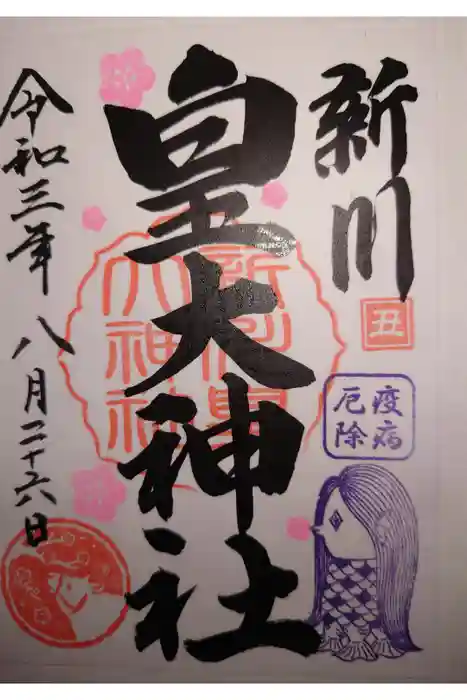 新川
皇大神社
丑
疫病
厄除
新川皇
大神社
令和三年八月二十六日